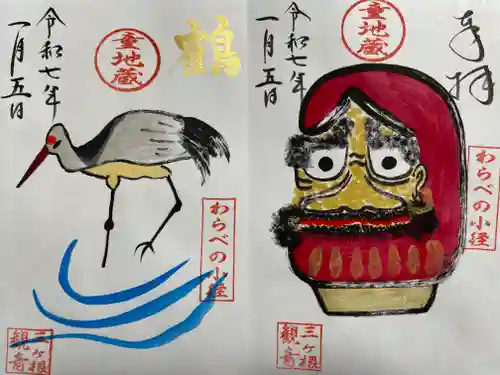 令和七年
一月五日
童地蔵
鶴
わらべの小径
三ヶ根
観音
奉拝
童地蔵
令和七年
一月五日
わらべの小径
三ヶ根
観音